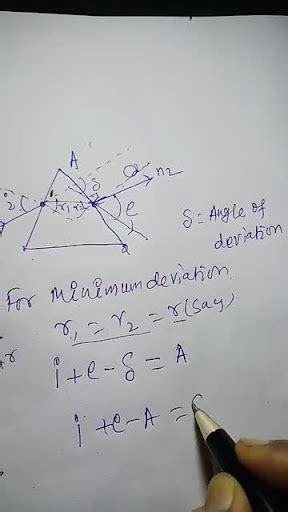 A
δ
n2
i
r1 r2
e
δ = Angle of
deviation
For Minimum deviation
r1 = r2 = r (Say)
i + e - δ = A
i + e - A =